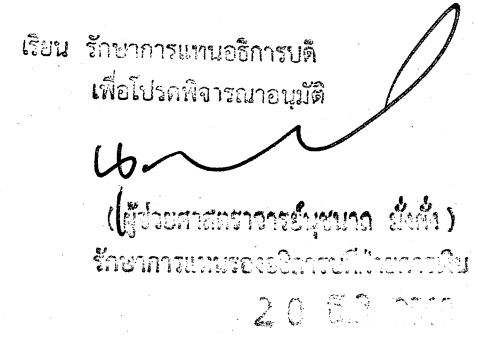 เรียน รักษาการแทนอธิการบดี
เพื่อโปรดพิจารณาอนุมัติ
(ผู้ช่วยศาสตราจารย์นุชนาถ มั่งคั่ง)
รักษาการแทนรองอธิการบดีฝ่ายการเงิน
20 ธ.ค.